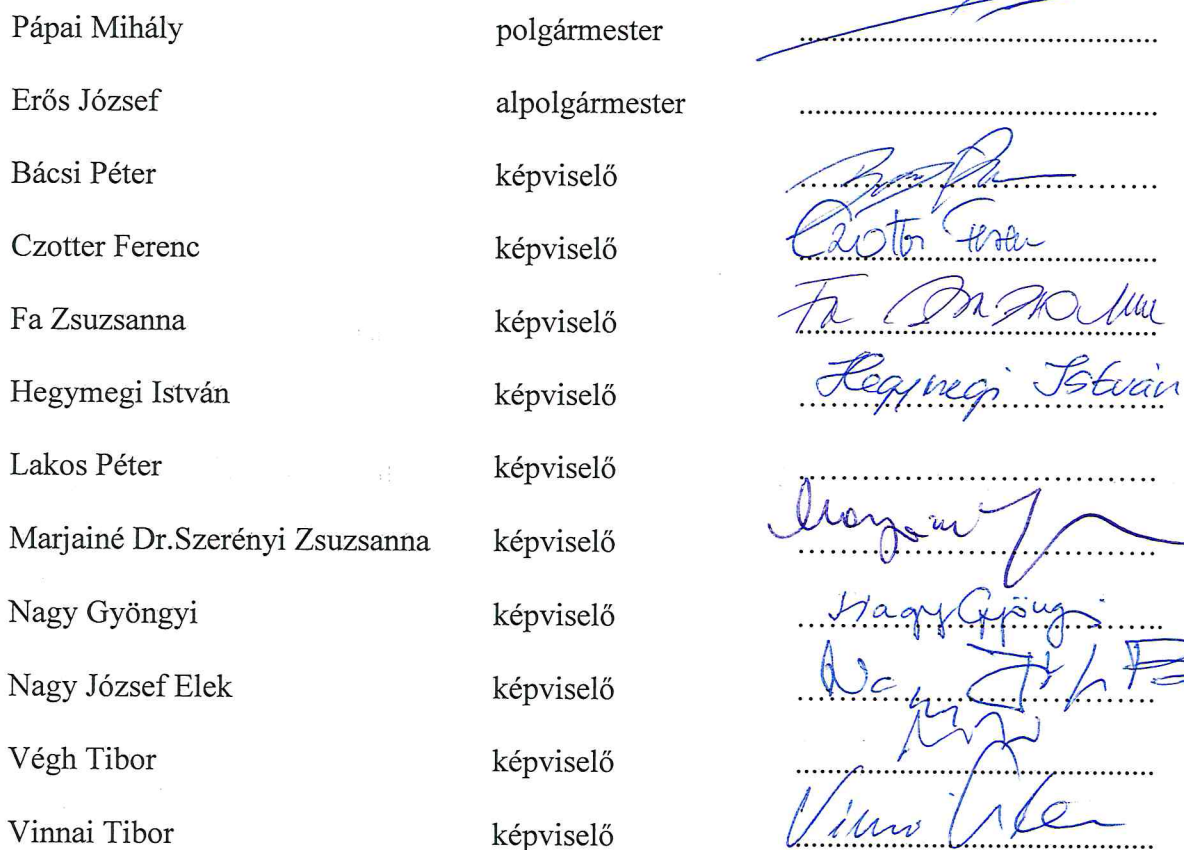 Pápai Mihály polgármester ........................................
Erős József alpolgármester ........................................
Bácsi Péter képviselő ........................................
Czotter Ferenc képviselő Czotter Ferenc
Fa Zsuzsanna képviselő Fa Zsuzsanna
Hegymegi István képviselő Hegymegi István
Lakos Péter képviselő ........................................
Marjainé Dr.Szerényi Zsuzsanna képviselő ........................................
Nagy Gyöngyi képviselő Nagy Gyöngyi
Nagy József Elek képviselő ........................................
Végh Tibor képviselő ........................................
Vinnai Tibor képviselő ........................................